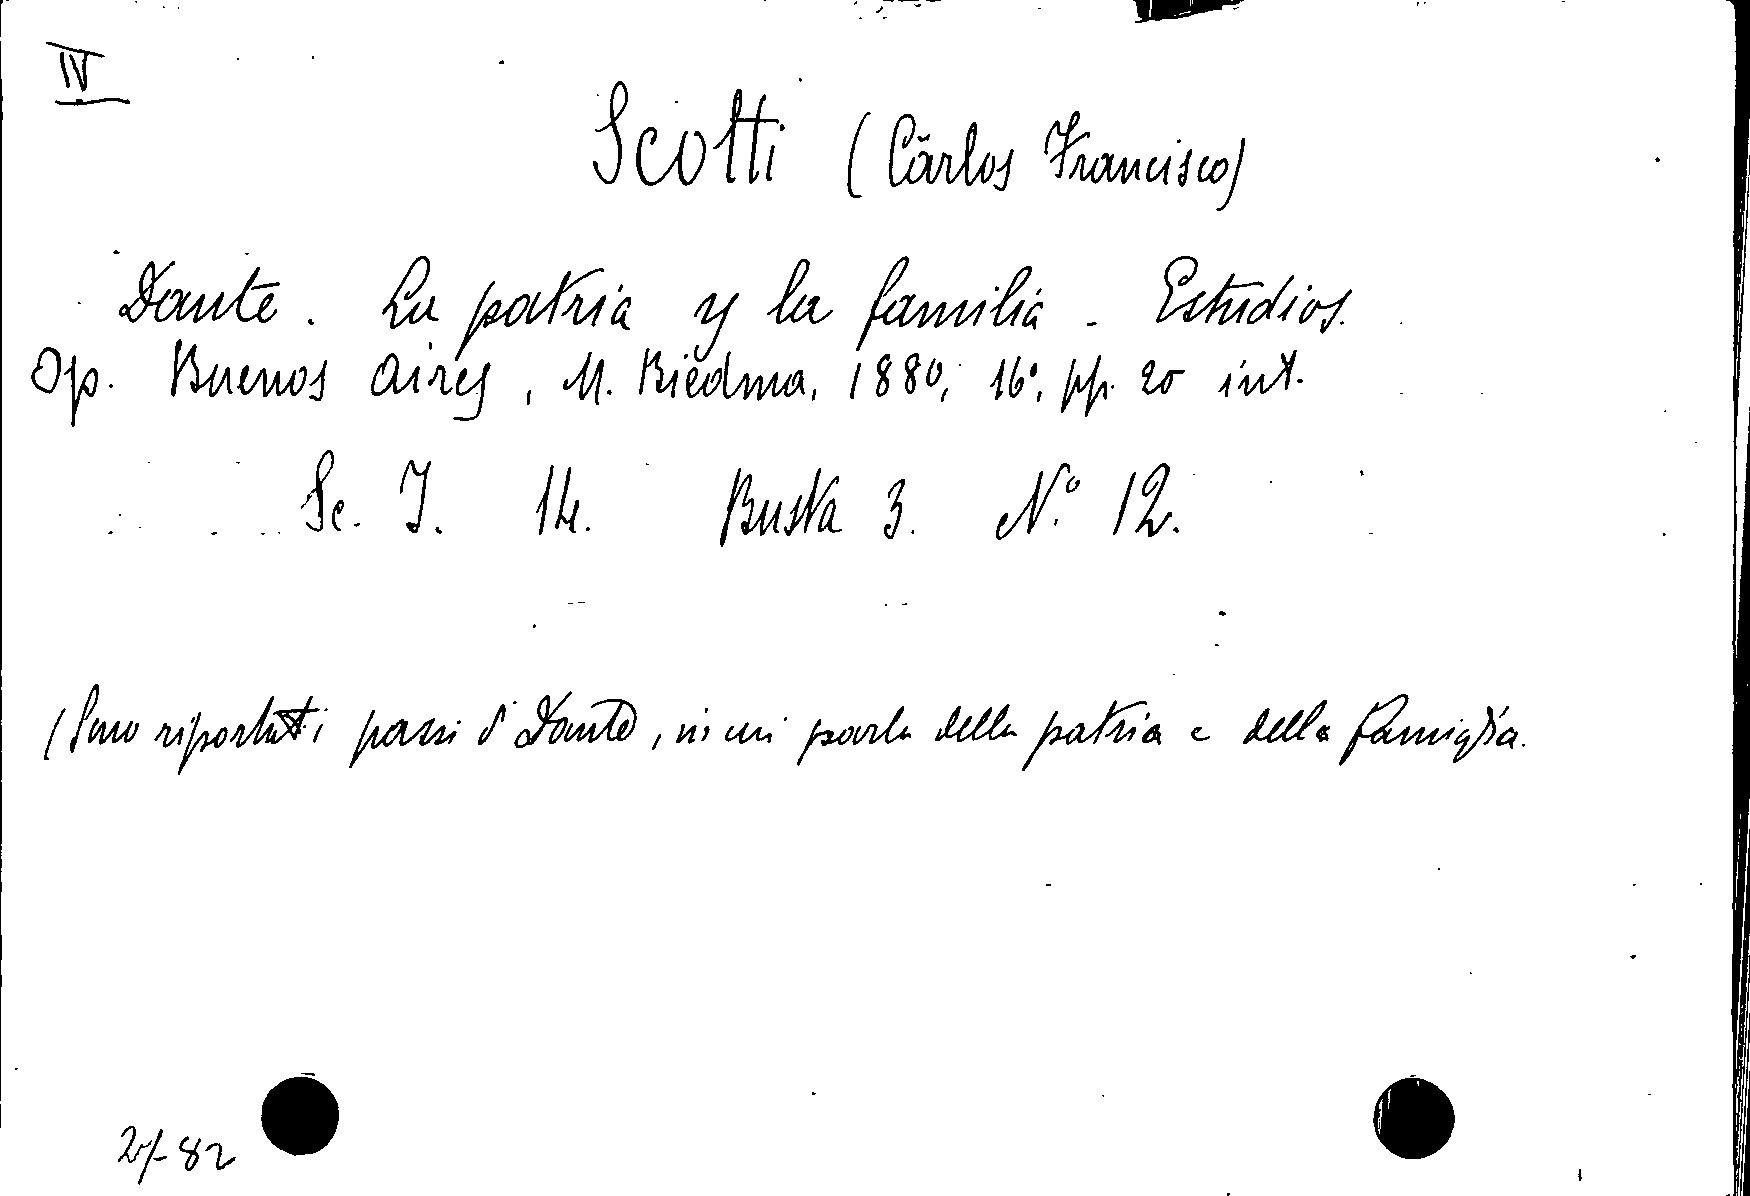 IV
Scotti (Carlos Francisco)
Dante. La patria y la familia - Estudios.
Op. Buenos Aires, M. Biedma, 1880, 16°, pp. 20 int.
Sc. I. 14. Busta 3. N.° 12.
(Sono riportati passi di Dante, in cui parla della patria e della famiglia.